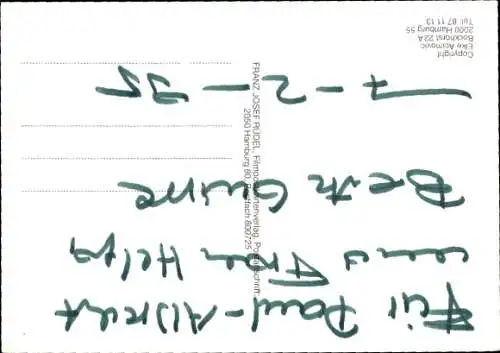 Copyright
Elke Acimovic
Bockhorst 22 A
2000 Hamburg 55
Tel: 87 11 13
FRANZ JOSEF RÜDEL, Filmpostkartenverlag, Postanschrift:
2050 Hamburg 80, Postfach 800725
Für Paul-Albrecht
und Frau Helga
Beste Grüsse